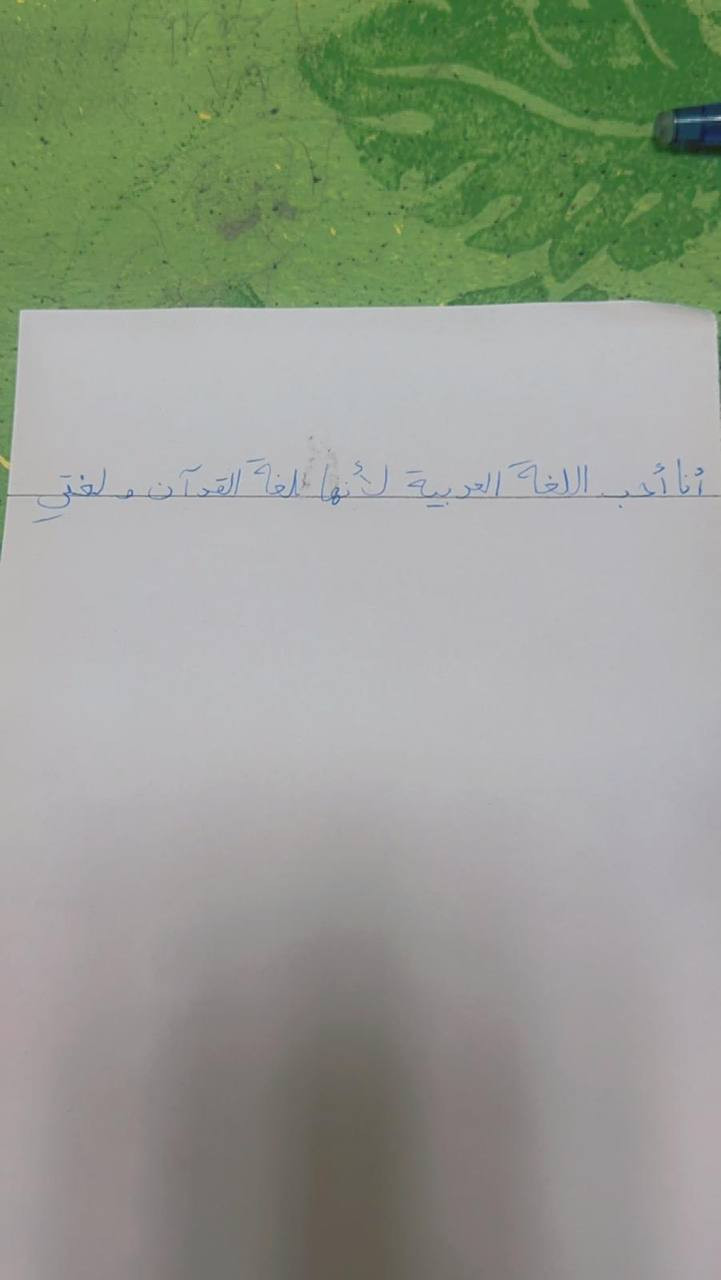 أنا أحب اللغة العربية لأنها لغة القرآن و لغتي